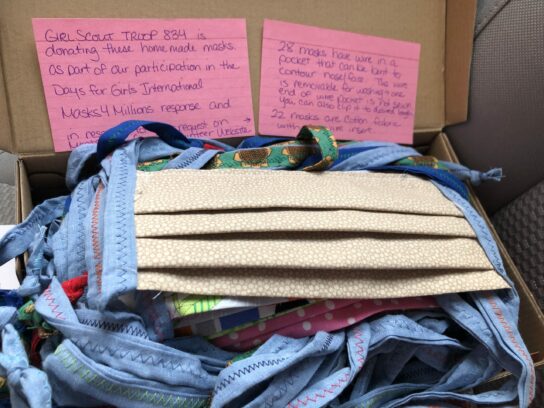 GIRL SCOUT TROOP 834 is
donating these homemade masks
as part of our participation in the
Days for Girls International
Masks 4 Millions response and
in request on
28 masks have wire in a
pocket that can be bent to
contour nose/face. The wire
is removable for washing - one
end of wire pocket is not sewn
you can also clip it to desired length
22 masks are cotton fabric
insert.